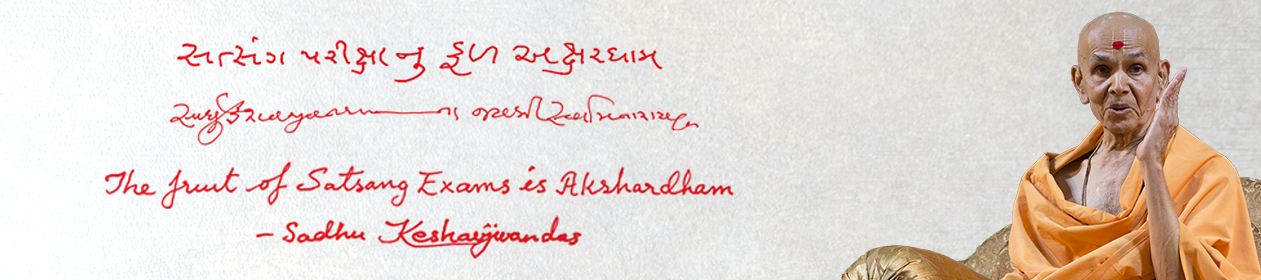 સત્સંગ પરીક્ષાનું ફળ અક્ષરધામ
સાધુ કેશવજીવનદાસના જયશ્રી સ્વામિનારાયણ
The fruit of Satsang Exams is Akshardham
- Sadhu Keshavjivandas